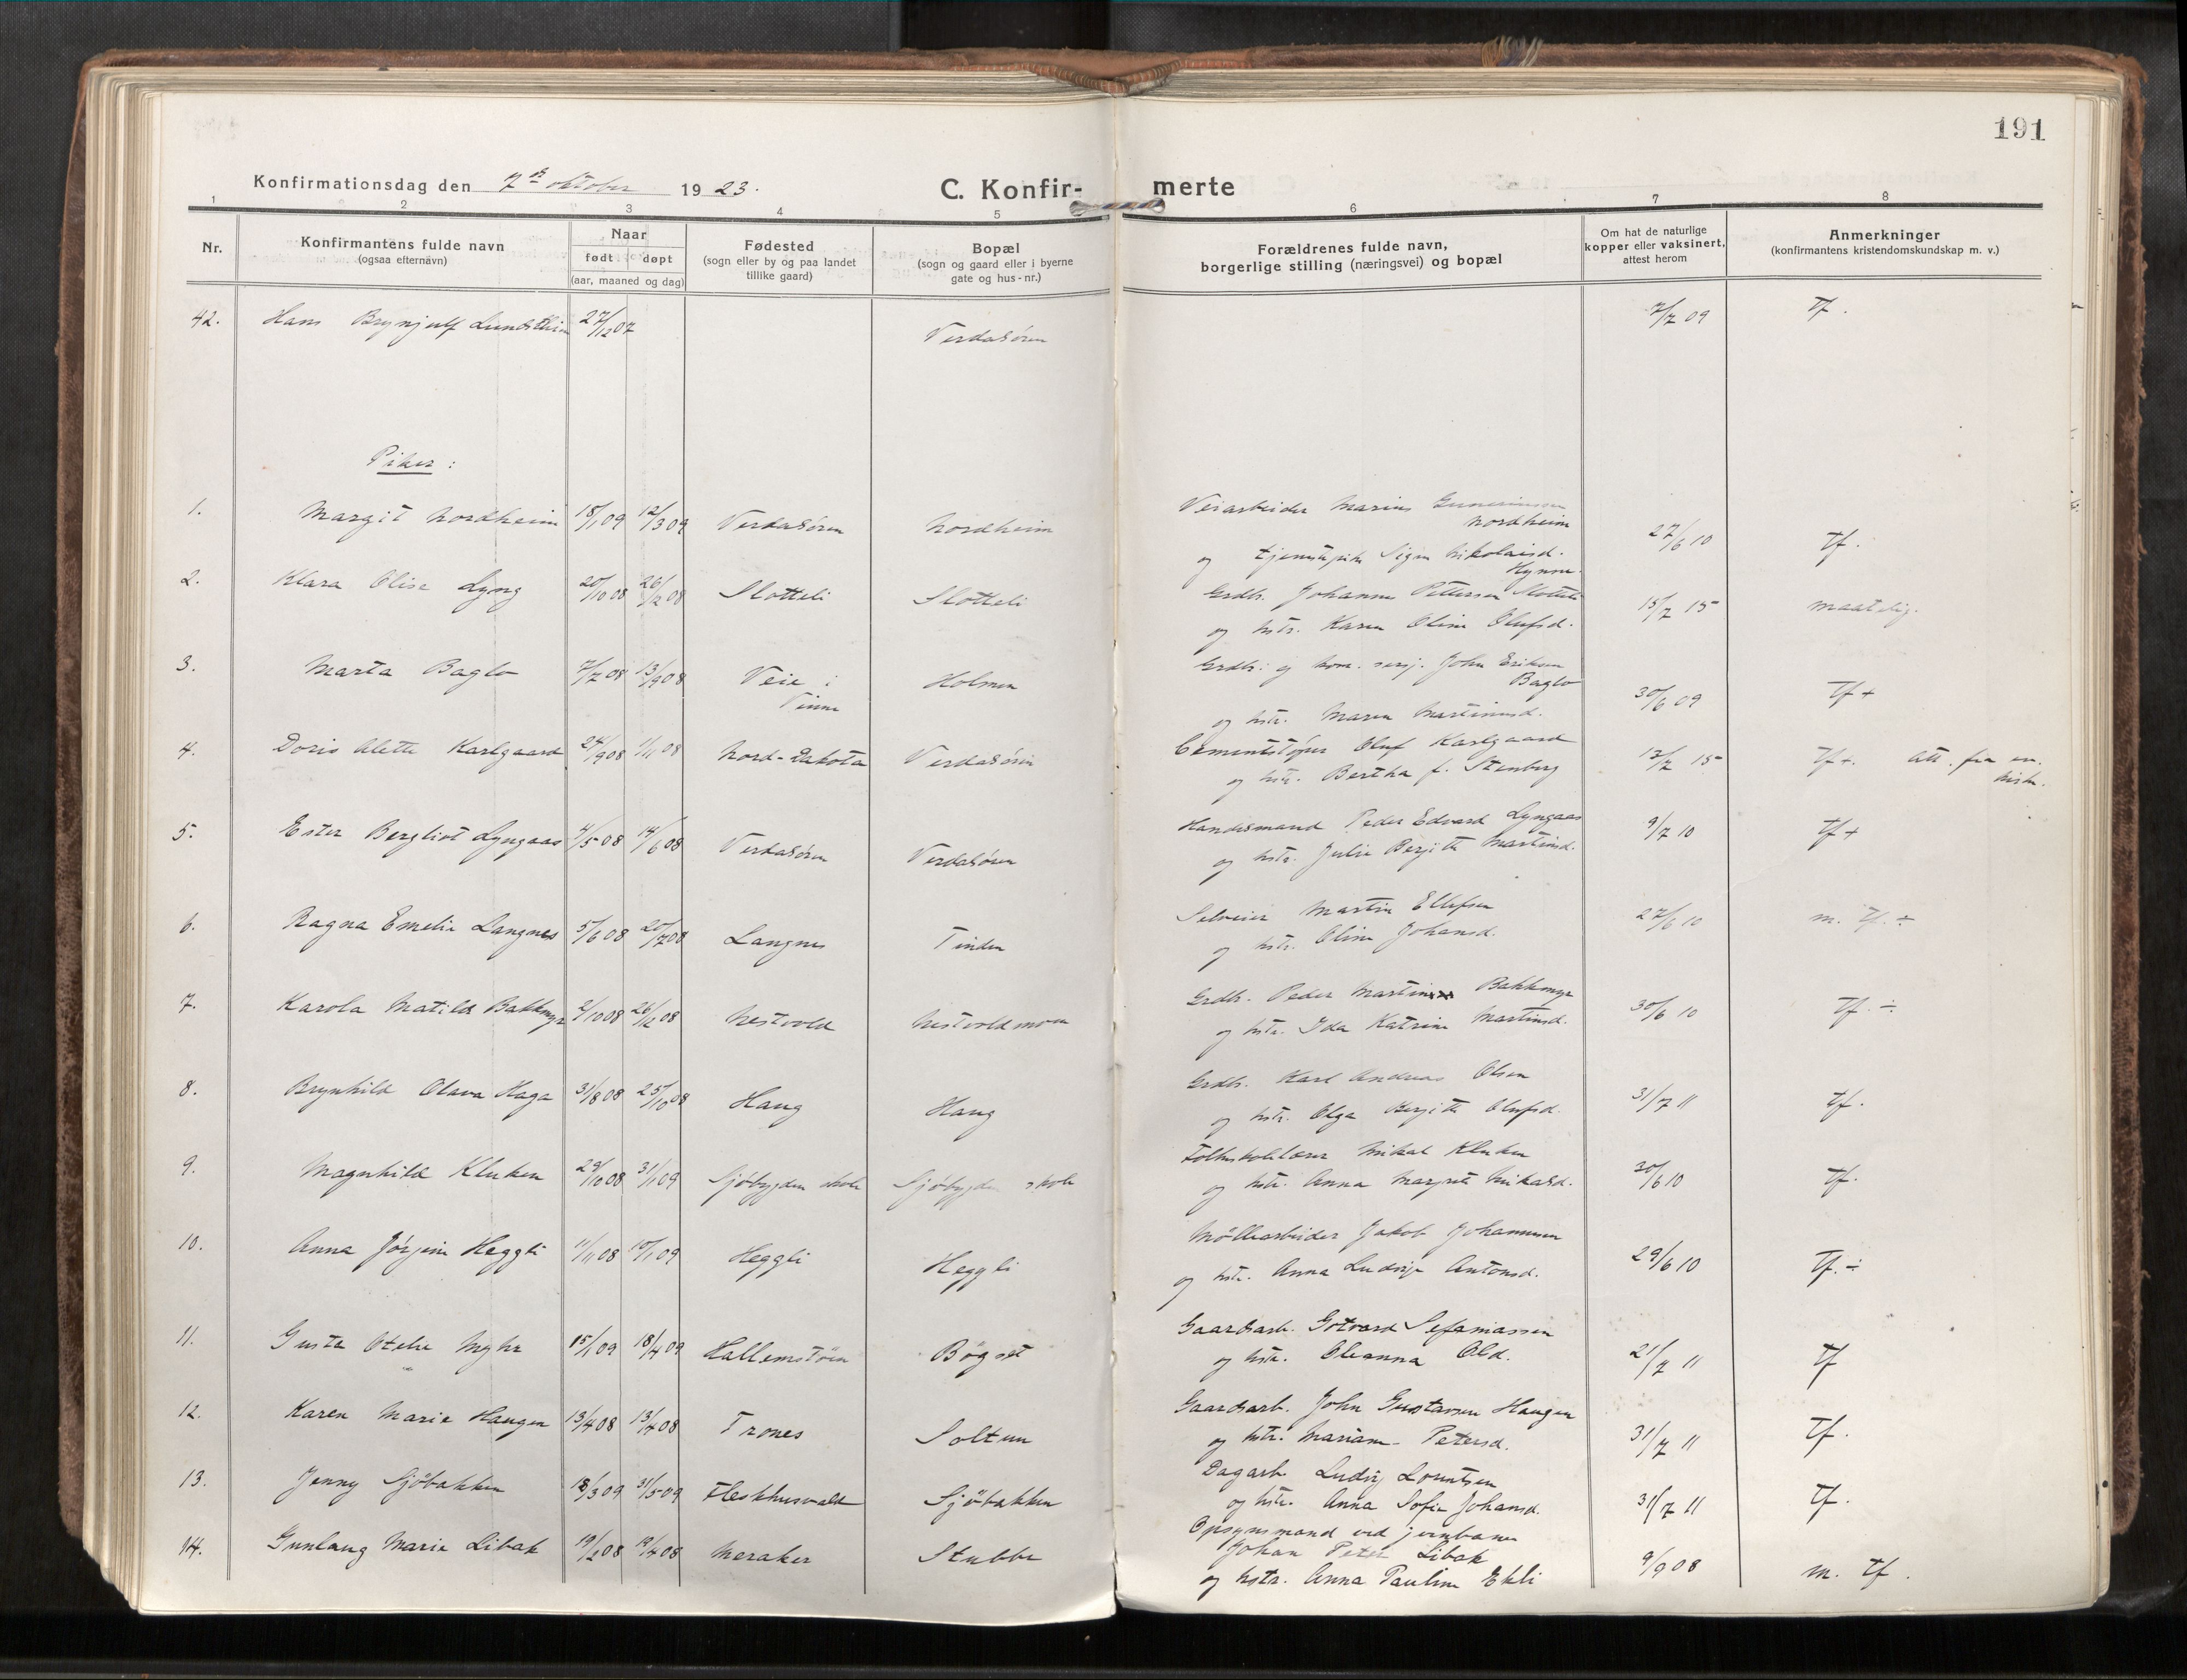 191
Konfirmationsdag den 7de oktober 1923.
C. Konfirmerte
1 2 3 4 5 6 7 8
Nr.
Konfirmantens fulde navn
(ogsaa efternavn)
Naar
født døpt
(aar, maaned og dag)
Fødested
(sogn eller by og paa landet
tillike gaard)
Bopæl
(sogn og gaard eller i byerne
gate og hus-nr.)
Forældrenes fulde navn,
borgerlige stilling (næringsvei) og bopæl
Om hat de naturlige
kopper eller vaksinert,
attest herom
Anmerkninger
(konfirmantens kristendomskundskap m. v.)
42. Hans Brynjulf 27/12 07 Verdalsøren 7/7 09 Tf.
Piker:
1. Margit Nordheim 18/1 09 12/3 09 Verdalsøren Nordheim Veiarbeider Marius
Nordheim
og tjenestepike Signe Nikolaisd. 27/6 10 Tf.
Hynne.
2. Klara Olise Lyng 20/10 08 26/2 08 Slotteli Slotteli Grdbr. Johannes Pettersen Slotteli
og hstr. Karen Oline Olufsd. 15/7 15 maatelig.
3. Marta Baglo 7/7 08 13/9 08 Veie i Holmen Grdbr. og kom. sersj. John Eriksen
Vinne Baglo
og hstr. Maren Martinusd. 30/6 09 Tf +
4. Doris Alette Karlgaard 24/9 08 1/11 08 Nord-Dakota Verdalsøren Cementstøper Oluf Karlgaard
og hstr. Bertha f. Stenberg 13/7 15 Tf +. Att. fra
5. Ester Bergliot Lyngaas 4/5 08 14/6 08 Verdalsøren Verdalsøren Handelsmand Peder Edvard Lyngaas
og hstr. Julie Berjitte Martinsd. 9/7 10 Tf +
6. Ragna Emelie Langnes 5/6 08 20/7 08 Langnes Tinden Selveier Martin Ellefsen
og hstr. Oline Johansd. 27/6 10 m. Tf. ÷
7. Karola Matild Bakkmyr 2/10 08 26/12 08 Nestvold Nestvoldmoen Grdbr. Peder Martin Bakkmyr
og hstr. Ida Katrine Martinsd. 30/6 10 Tf. ÷
8. Brynhild Olava Haga 31/8 08 25/10 08 Haug Haug Grdbr. Karl Andreas Olsen
og hstr. Olga Berjitte Olufsd. 31/7 11 Tf.
9. Magnhild Kluken 29/10 08 31/1 09 Sjøbygden skole Sjøbygden skole Folkeskolelærer Mikal Kluken
og hstr. Anna Margrete Mikalsd. 30/6 10 Tf.
10. Anna Jørgine Heggli 11/11 08 10/1 09 Heggli Heggli Møllearbeider Jakob Johannesen
og hstr. Anna Ludvije Antonsd. 29/6 10 Tf. ÷
11. Gusta Otelie Myhr 15/1 09 18/4 09 Hallemstøen Bøgset Gaardsarb. Gotvard Sefaniassen
og hstr. Oleanna Olsd. 21/7 11 Tf
12. Karen Marie Haugen 13/4 08 13/4 08 Trones Soltun Gaardsarb. John Gustavsen Haugen
og hstr. Mariane Petersd. 31/7 11 Tf.
13. Jenny Sjøbakken 18/3 09 31/5 09 Fleskhusvald Sjøbakken Dagarb. Ludvig Lorentsen
og hstr. Anna Sofie Johansd. 31/7 11 Tf.
14. Gunlaug Marie Libak 19/2 08 19/4 08 Meraker Stubbe Opsynsmand ved jernbanen
Johan Peter Libak
og hstr. Anna Pauline Ekli 9/9 08 m. Tf.